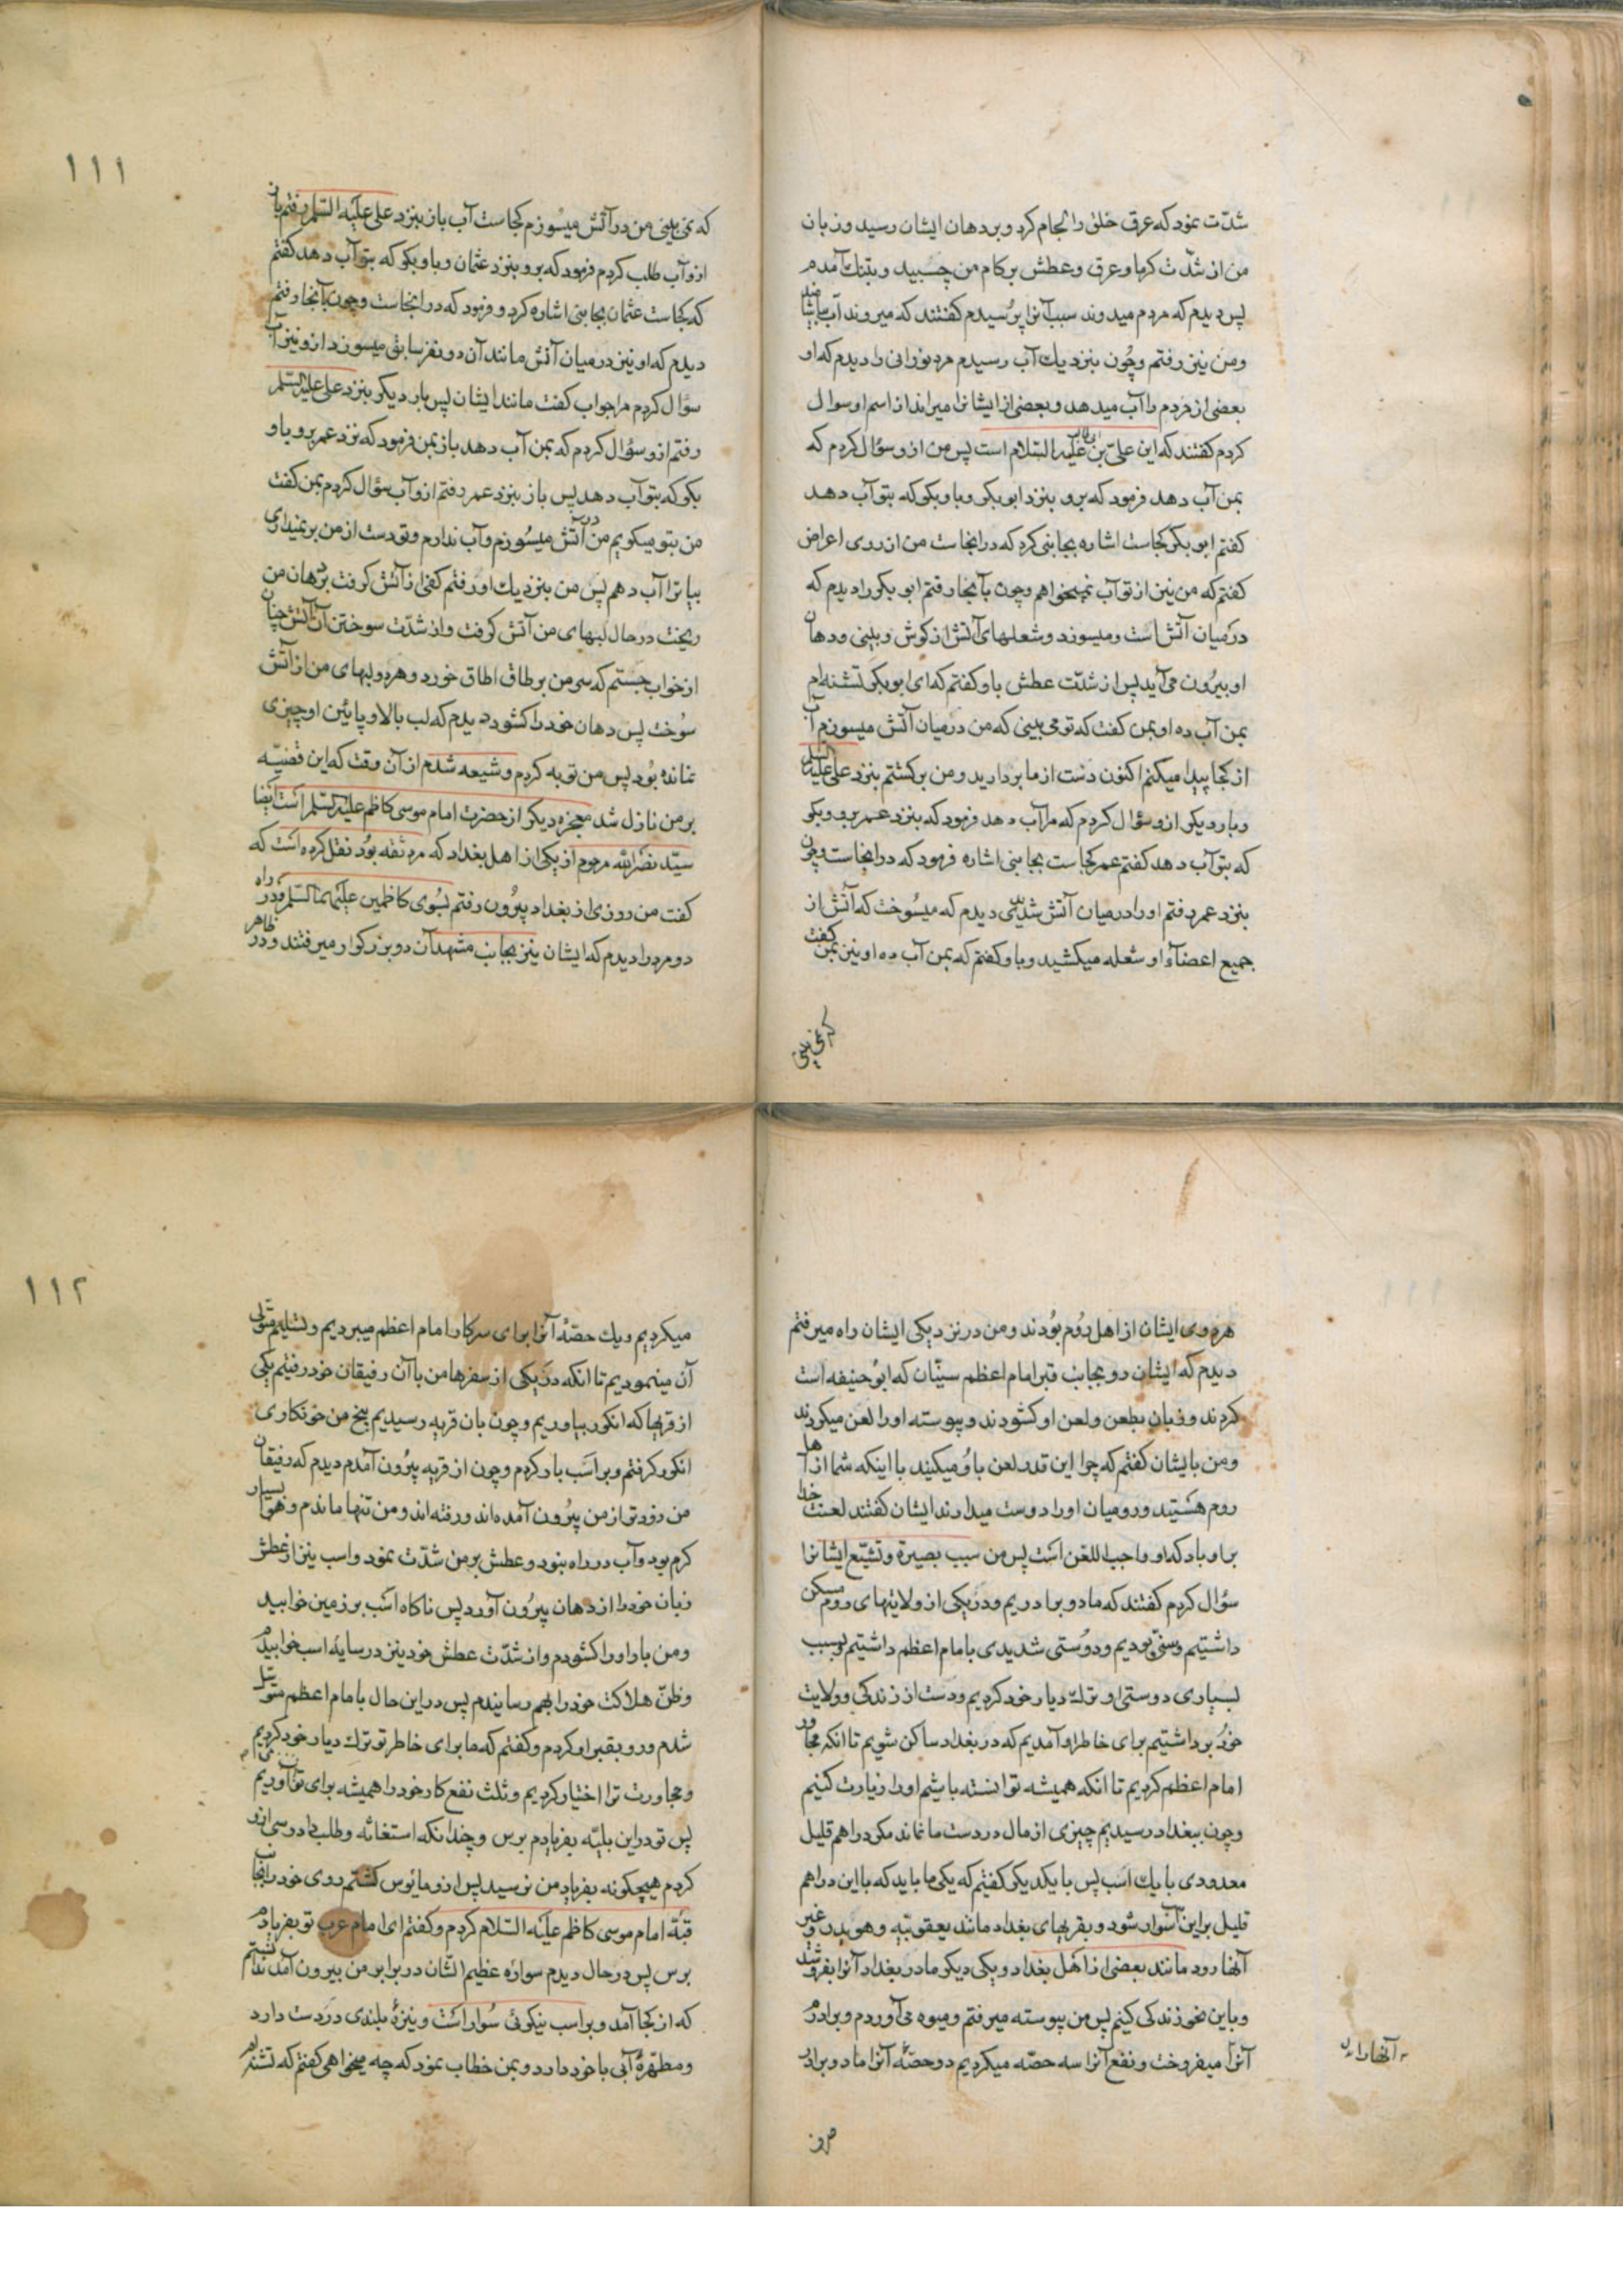 شدّت نمود که عرق خلق را لجام کرد و بر دهان ایشان رسید و زبان
من از شدّت گرما و عرق و عطش بر کام من چسبید و بتنک آمدم
پس دیدم که مردم میدوند سبب آنرا پرسیدم گفتند که میروند آب بیاشامند
و من نیز رفتم و چون بنزدیك آب رسیدم مرد نورانی را دیدم که او
بعضی از مردم را آب میدهد و بعضی از ایشانرا میراند از اسم او سوال
کردم گفتند که این علیّ بن ابی طالب علیه السّلام است پس من ازو سؤال کردم که
بمن آب دهد فرمود که برو بنزد ابو بکر و باو بکو که بتو آب دهد
کفتم ابو بکر کجاست اشاره بجانبی کرد که در انجاست من از روی اعراض
کفتم که من نیز از تو آب نمیخواهم و چون بآنجا رفتم ابو بکر را دیدم که
در میان آتش است و میسوزد و شعلهای آتش از کوش و بینی و دهان
او بیرون می آید پس از شدّت عطش باو کفتم که ای ابو بکر تشنه ام
بمن آب ده او بمن کفت که تو می بینی که من در میان آتش میسوزم آب
از کجا پیدا میکنم اکنون دست از ما بردارید و من برکشتم بنزد علی علیه السلم
و بار دیکر ازو سؤال کردم که مرا آب دهد فرمود که بنزد عمر برو و بکو
که بتو آب دهد کفتم عمر کجاست بجانبی اشاره فرمود که در انجاست و چون
بنزد عمر رفتم او را در میان آتش شدیدی دیدم که میسوخت که آتش از
جمیع اعضآء او شعله میکشید و باو کفتم که بمن آب ده او نیز بمن کفت
که نمی بینی
۱۱۱
که نمی بینی من در آتش میسوزم کجاست آب باز بنزد علی علیه السّلم رفتم باز
ازو آب طلب کردم فرمود که برو بنزد عثمان و باو بکو که بتو آب دهد کفتم
که کجاست عثمان بجانبی اشاره کرد و فرمود که در انجاست و چون بآنجا رفتم
دیدم که او نیز در میان آتش مانند آن دو نفر سابق میسوزد ازو نیز آب
سؤال کردم مرا جواب کفت مانند ایشان پس بار دیکر بنزد علی علیه السّلم
رفتم ازو سؤال کردم که بمن آب دهد باز بمن فرمود که نزد عمر برو و باو
بکو که بتو آب دهد پس باز بنزد عمر رفتم ازو آب سؤال کردم بمن کفت
من بتو میکویم من در آتش میسوزم و آب ندارم و تو دست از من بر نمیداری
بیا ترا آب دهم پس من بنزدیك او رفتم کفی از آتش کرفت بر دهان من
ریخت در حال لبهای من آتش کرفت و از شدّت سوختن آن آتش چنان
از خواب جستم که سر من بر طاق اطاق خورد و هر دو لبهای من از آتش
سوخت پس دهان خود را کشود دیدم که لب بالا و پائین او چیزی
نمانده بود پس من توبه کردم و شیعه شدم از آن وقت که این قضیّه
بر من نازل شد معجزه دیکر از حضرت امام موسی کاظم علیه السّلم است ایضا
سیّد نصر الله مرحوم از یکی از اهل بغداد که مرد ثقه بود نقل کرده است که
کفت من روزی از بغداد بیرون رفتم بسوی کاظمین علیهما السّلم و در راه
دو مرد را دیدم که ایشان نیز بجانب مشهد آن دو بزرکوار میرفتند و در ظاهر
هر دوی ایشان از اهل روم بودند و من در نزدیکی ایشان راه میرفتم
دیدم که ایشان رو بجانب قبر امام اعظم سنّیان که ابو حنیفه است
کردند و زبان بطعن و لعن او کشودند و پیوسته او را لعن میکردند
و من بایشان کفتم که چرا این قدر لعن باو میکنید با اینکه شما از اهل
روم هستید و رومیان او را دوست میدارند ایشان کفتند لعنت خدا
بر او باد که او واجب اللعن است پس من سبب بصیرة و تشیّع ایشانرا
سؤال کردم کفتند که ما دو برادریم و در یکی از ولایتهای روم مسکن
داشتیم و سنّی بودیم و دوستی شدیدی با امام اعظم داشتیم و بسبب
بسیاری دوستی او ترك دیار خود کردیم و دست از زندکی و ولایت
خود برداشتیم برای خاطر او آمدیم که در بغداد ساکن شویم تا انکه مجاور
امام اعظم کردیم تا انکه همیشه توانسته باشیم او را زیارت کنیم
و چون ببغداد رسیدیم چیزی از مال در دست ما نماند مکر دراهم قلیل
معدودی با یك اسب پس با یکدیکر کفتیم که یکی ما باید که با این دراهم
قلیل بر این اسب سوار شود و بقریهای بغداد مانند یعقوبیّه و هویدر و غیر
آنها رود مانند بعضی از اهل بغداد و یکی دیکر ما در بغداد آنرا بفروشد
و باین نحو زندکی کنیم پس من پیوسته میرفتم و میوه می آوردم و برادرم
آنرا میفروخت و نفع آنرا سه حصّه میکردیم دو حصّه آنرا ما دو برادر
آنها را
۱۱۲
میکردیم و یك حصّه آنرا برای سرکار امام اعظم میبردیم و تسلیم متولی
آن مینمودیم تا انکه در یکی از سفرها من با آن رفیقان خود رفتیم بیکی
از قریها که انکور بیاوریم و چون بان قریه رسیدیم من
انکور کرفتم و بر اسب بار کردم و چون از قریه بیرون آمدم دیدم که رفیقان
من زودتر از من بیرون آمده اند و رفته اند و من تنها ماندم و هوا بسیار
کرم بود و آب در راه نبود و عطش بر من شدّت نمود و اسب نیز از عطش
زبان خود را از دهان بیرون آورد پس ناکاه اسب بر زمین خوابید
و من بار او را کشودم و از شدّت عطش خود نیز در سایه اسب خوابیدم
و ظنّ هلاکت خود را بهم رسانیدم پس در این حال با امام اعظم متوسّل
شدم و رو بقبر او کردم و کفتم که ما برای خاطر تو ترك دیار خود کردیم
و مجاورت ترا اختیار کردیم و ثلث نفع کار خود را همیشه برای نوّاب تو می آوردیم
پس تو در این بلیّه بفریادم برس و چندانکه استغاثه و طلب دادرسی ازو
کردم هیچکونه بفریاد من نرسید پس ازو مایوس کشتم روی خود را بجانب
قبّه امام موسی کاظم علیه السّلام کردم و کفتم ای امام عرب تو بفریادم
برس پس در حال دیدم سواره عظیم الشّان در برابر من بیرون آمد ندانستم
که از کجا آمد و بر اسب نیکوئی سوار است و نیزه بلندی در دست دارد
و مطهّره آبی با خود دارد و بمن خطاب نمود که چه میخواهی کفتم که تشنه ام